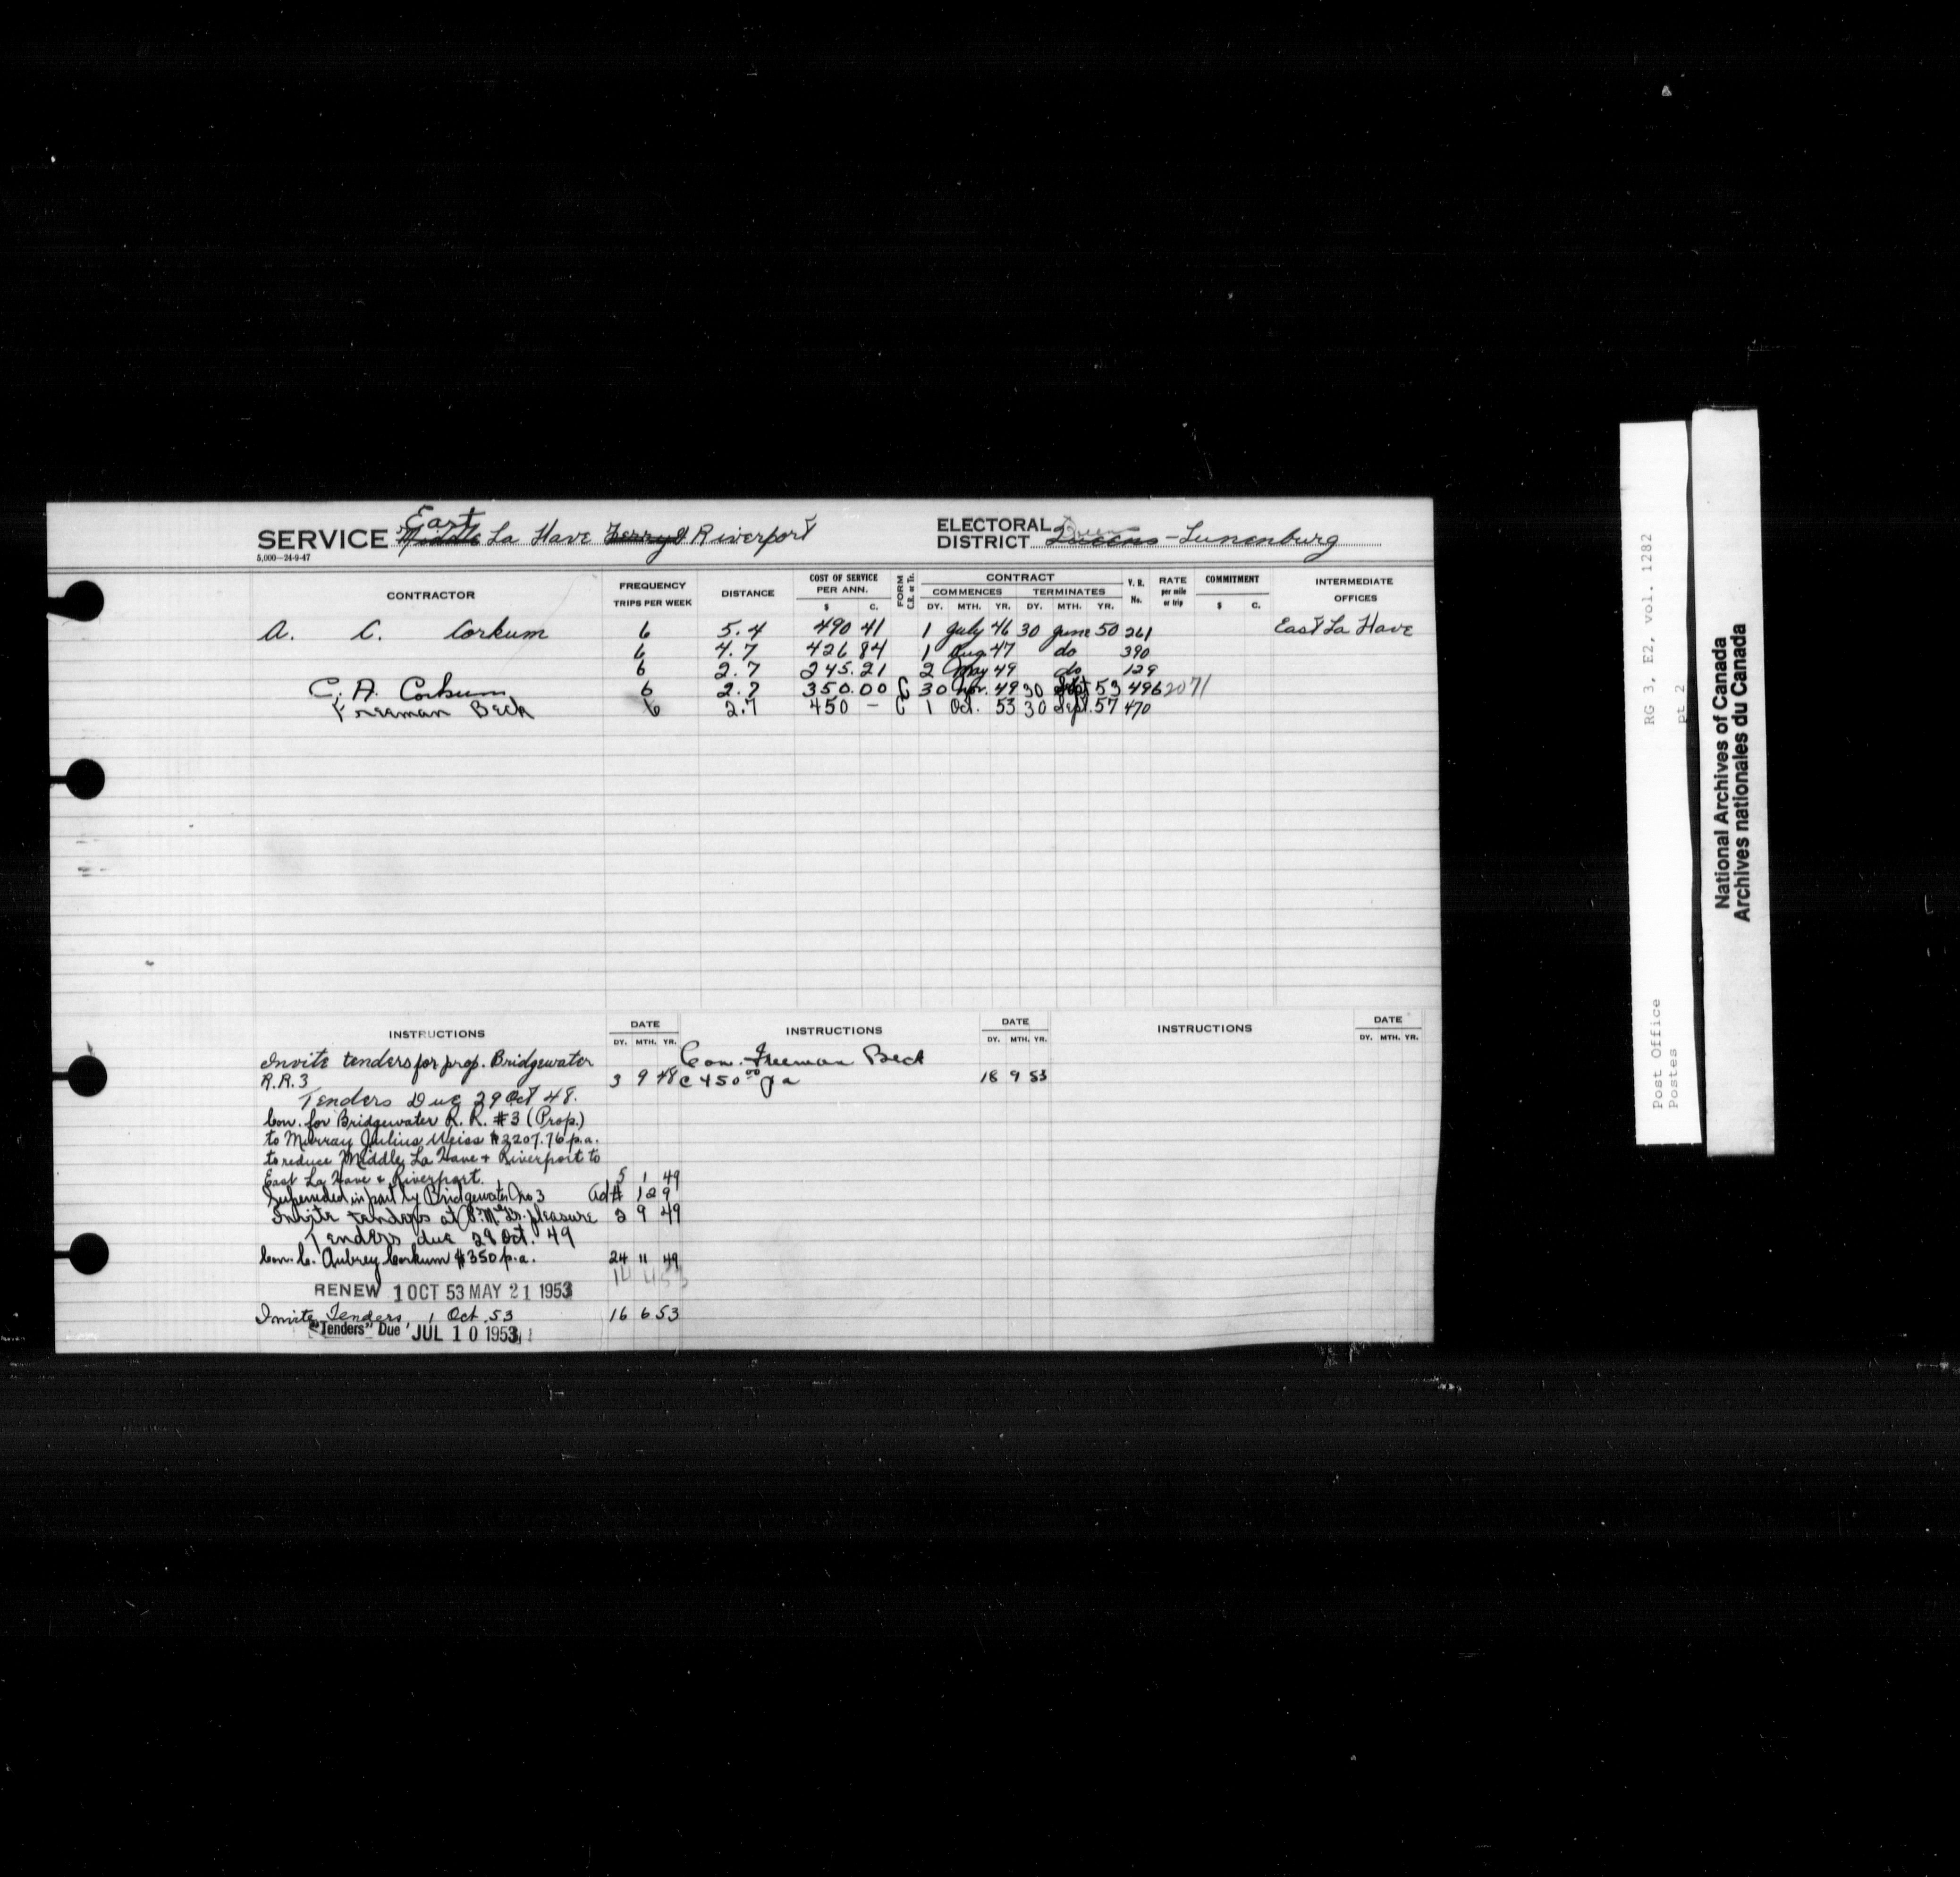 East
SERVICE Middle La Have Ferry & Riverport
ELECTORAL DISTRICT Queens - Lunenburg
5,000-24-9-47
CONTRACTOR FREQUENCY TRIPS PER WEEK DISTANCE COST OF SERVICE PER ANN. $ C. FORM C.R. or Tr. CONTRACT COMMENCES DY. MTH. YR. TERMINATES DY. MTH. YR. V. R. No. RATE per mile or trip COMMITMENT $ C. INTERMEDIATE OFFICES
A. C. Corkum 6 5.4 490 41 1 July 46 30 June 50 261 East La Have
6 4.7 426 84 1 Aug 47 do 390
6 2.7 245.21 2 May 49 do 129
C. A. Corkum 6 2.7 350.00 C 30 Nov. 49 30 Sept 53 496 2071
Freeman Beck 6 2.7 450 — C 1 Oct. 53 30 Sept. 57 470
INSTRUCTIONS DATE DY. MTH. YR. INSTRUCTIONS DATE DY. MTH. YR. INSTRUCTIONS DATE DY. MTH. YR.
Invite tenders for prop. Bridgewater
R.R.3 3 9 48
Tenders Due 29 Oct 48.
Con. for Bridgewater R. R. #3 (Prop.)
to Murray Julius Weiss $2207.76 p.a.
to reduce Middle La Have & Riverport to
East La Have & Riverport. 5 1 49
Superseded in part by Bridgewater No 3 Ad# 129
Invite tenders at P.M. Gs. pleasure 2 9 49
Tenders due 28 Oct. 49
Con. C. Aubrey Corkum $350 p.a. 24 11 49
14 4 53
RENEW 1 OCT 53 MAY 21 1953
Invite Tenders 1 Oct. 53 16 6 53
"Tenders" Due JUL 10 1953
Con. Freeman Beck
@ 450.00 pa 18 9 53
Post Office RG 3, E2, vol. 1282
Postes pt 2
National Archives of Canada
Archives nationales du Canada